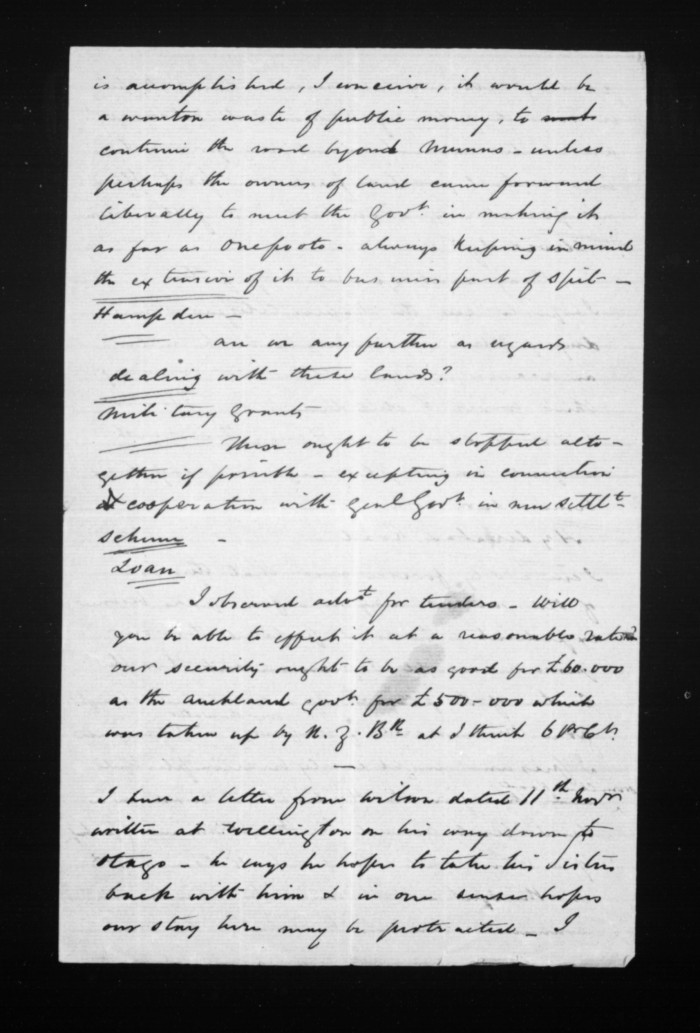 is accomplished, I conceive, it would be
a wanton waste of public money, to
continue the road beyond Nunns - unless
perhaps the owners of land came forward
liberally to meet the Govt. in making it
as far as Onepoto - always keeping in mind
the extension of it to business part of Spit -
Hampden -
are we any further as regards
dealing with these lands?
Military Grants
These ought to be stopped alto-
gether if possible - excepting in connection
& cooperation with Genl Govt. in new settlt-
scheme -
Loan
I observed advt for tenders - Will
you be able to effect it at a reasonable rate
our security ought to be as good for £60.000
as the Auckland Govt for £500-000 which
was taken up by N.Z.Bk at I think 6 PrCt.
I have a letter from Wilson dated 11th Novr
written at Wellington on his way down to
Otago - he says he hopes to take his Sisters
back with him & in one sense hopes
our stay here may be protracted - I